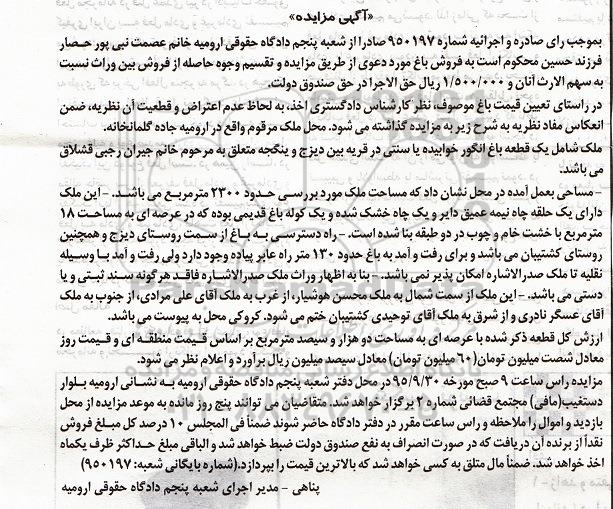 «آگهی مزایده»
بموجب رای صادره و اجرائیه شماره ۹۵۰۱۹۷ صادرا از شعبه پنجم دادگاه حقوقی ارومیه خانم عصمت نبی پور حصار
فرزند حسین محکوم است به فروش باغ مورد دعوی از طریق مزایده و تقسیم وجوه حاصله از فروش بین وراث نسبت
به سهم الارث آنان و ۱/۵۰۰/۰۰۰ ریال حق الاجرا در حق صندوق دولت.
در راستای تعیین قیمت باغ موصوف، نظر کارشناس دادگستری اخذ، به لحاظ عدم اعتراض و قطعیت آن نظریه، ضمن
انعکاس مفاد نظریه به شرح زیر به مزایده گذاشته می شود. محل ملک مرقوم واقع در ارومیه جاده گلمانخانه.
ملک شامل یک قطعه باغ انگور خوابیده یا سنتی در قریه بین دیزج و ینگجه متعلق به مرحوم خانم جیران رجبی قشلاق
می باشد.
-مساحی بعمل آمده در محل نشان داد که مساحت ملک مورد بررسی حدود ۲۳۰۰ مترمربع می باشد. - این ملک
دارای یک حلقه چاه نیمه عمیق دایر و یک چاه خشک شده و یک کوله باغ قدیمی بوده که در عرصه ای به مساحت ۱۸
مترمربع با خشت خام و چوب در دو طبقه بنا شده است. - راه دسترسی به باغ از سمت روستای دیزج و همچنین
روستای کشتیبان می باشد و برای رفت و آمد به باغ حدود ۱۳۰ متر راه عابر پیاده وجود دارد ولی رفت و آمد با وسیله
نقلیه تا ملک صدرالاشاره امکان پذیر نمی باشد. - بنا به اظهار وراث ملک صدرالاشاره فاقد هرگونه سند ثبتی و یا
دستی می باشد. - این ملک از سمت شمال به ملک محسن هوشیار، از غرب به ملک آقای علی مرادی، از جنوب به ملک
آقای عسگر نادری و از شرق به ملک آقای توحیدی کشتیبان ختم می شود. کروکی محل به پیوست می باشد.
ارزش کل قطعه ذکر شده با عرصه ای به مساحت دو هزار و سیصد مترمربع بر اساس قیمت منطقه ای و قیمت روز
معادل شصت میلیون تومان(۶۰ میلیون تومان) معادل سیصد میلیون ریال برآورد و اعلام نظر می شود.
مزایده راس ساعت ۹ صبح مورخه ۹۵/۹/۳۰ در محل دفتر شعبه پنجم دادگاه حقوقی ارومیه به نشانی ارومیه بلوار
دستغیب(مافی) مجتمع قضائی شماره ۲ برگزار خواهد شد. متقاضیان می توانند پنج روز مانده به موعد مزایده از محل
بازدید و اموال را ملاحظه و راس ساعت مقرر در دفتر دادگاه حاضر شوند ضمناً فی المجلس ۱۰ درصد کل مبلغ فروش
نقداً از برنده آن دریافت که در صورت انصراف به نفع صندوق دولت ضبط خواهد شد و الباقی مبلغ حداکثر ظرف یکماه
اخذ خواهد شد. ضمناً مال متلق به کسی خواهد شد که بالاترین قیمت را بپردازد.(شماره بایگانی شعبه: ۹۵۰۱۹۷)
پناهی - مدیر اجرای شعبه پنجم دادگاه حقوقی ارومیه